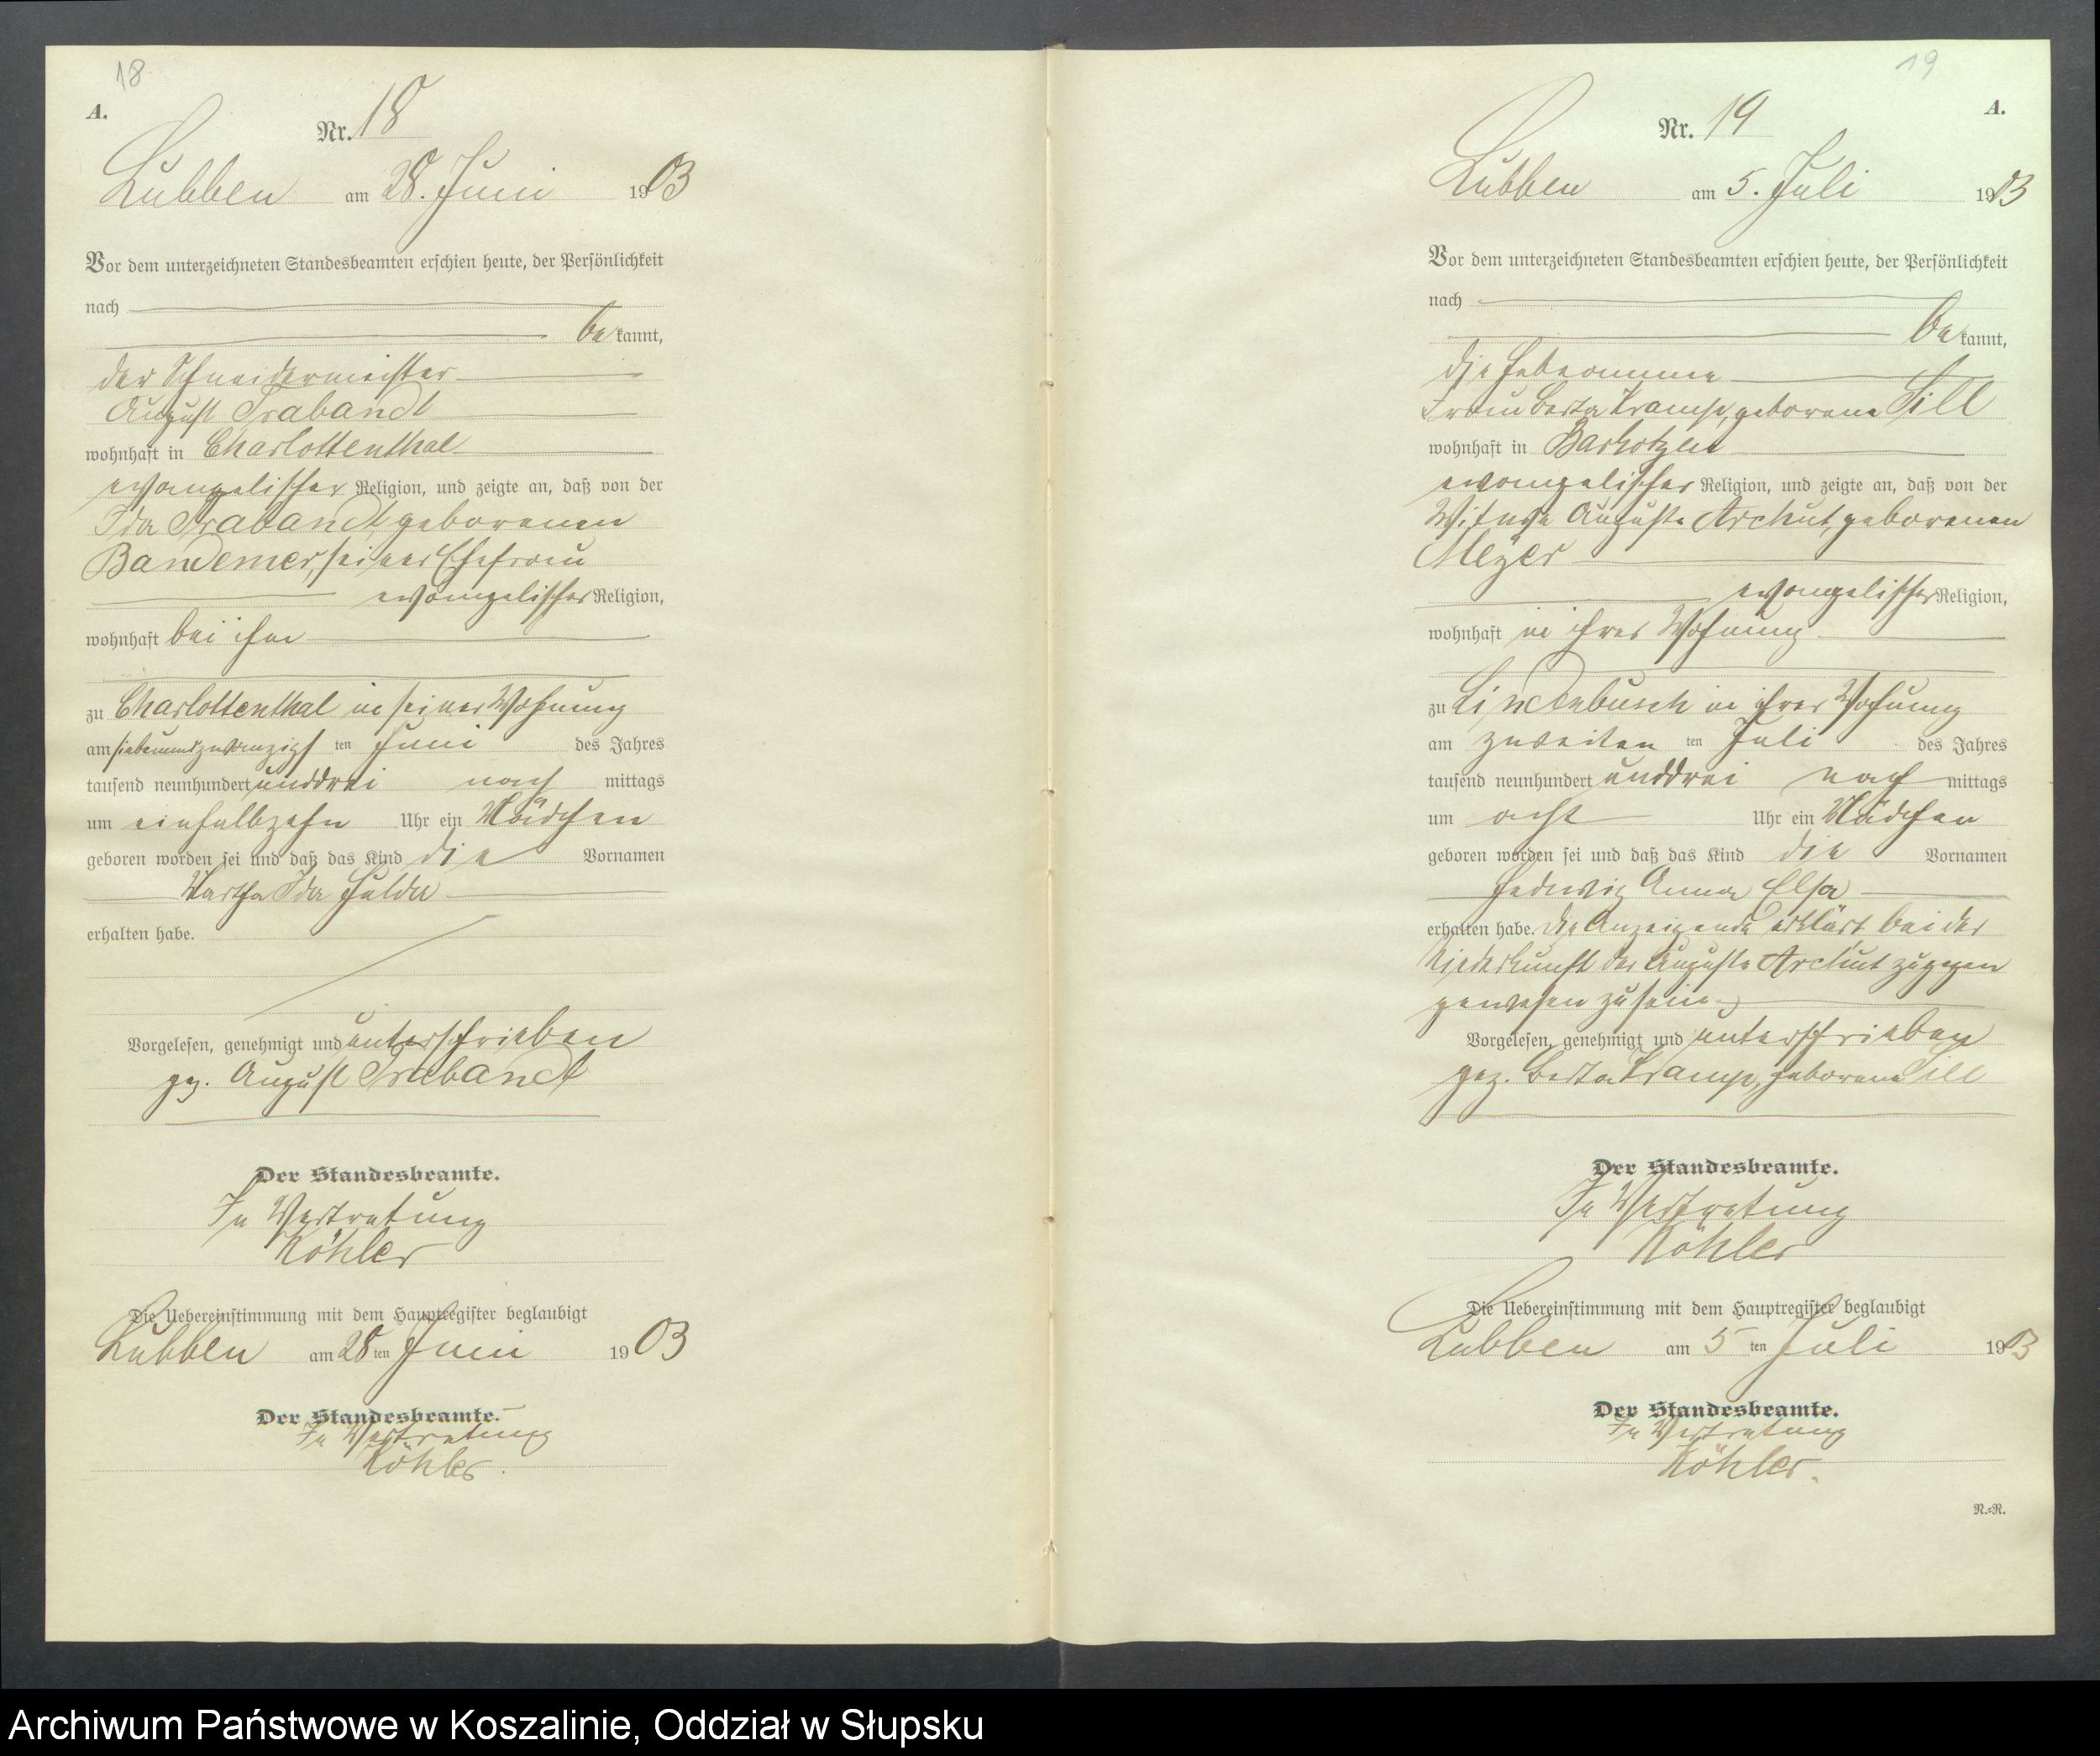 18
A.
Nr. 18
Lubben am 28. Juni 1903
Vor dem unterzeichneten Standesbeamten erschien heute, der Persönlichkeit
nach
bekannt,
der Schneidermeister
August Trabandt
wohnhaft in Charlottenthal
evangelischer Religion, und zeigte an, daß von der
Ida Trabandt, geborenen
Bandemer, seiner Ehefrau
evangelischer Religion,
wohnhaft bei ihm
zu Charlottenthal in seiner Wohnung
am siebenundzwanzigsten Juni des Jahres
tausend neunhundert unddrei nachmittags
um einhalbzehn Uhr ein Mädchen
geboren worden sei und daß das Kind die Vornamen
Martha Ida Hulda
erhalten habe.
Vorgelesen, genehmigt und unterschrieben
gez. August Trabandt
Der Standesbeamte.
In Vertretung
Köhler
Die Uebereinstimmung mit dem Hauptregister beglaubigt
Lubben am 28 ten Juni 1903
Der Standesbeamte.
In Vertretung
Köhler.
19
A.
Nr. 19
Lubben am 5. Juli 1903
Vor dem unterzeichneten Standesbeamten erschien heute, der Persönlichkeit
nach
bekannt,
die Hebeamme
Frau Berta Kramp, geborene Sill
wohnhaft in Barkotzen
evangelischer Religion, und zeigte an, daß von der
Witwe Auguste Archut, geborenen
Meyer
evangelischer Religion,
wohnhaft in ihrer Wohnung
zu Lindenbusch in ihrer Wohnung
am zweiten ten Juli des Jahres
tausend neunhundert unddrei nachmittags
um acht Uhr ein Mädchen
geboren worden sei und daß das Kind die Vornamen
Hedwig Anna Elsa
erhalten habe. Die Anzeigende erklärt bei der
Niederkunft der Auguste Archut zugegen
gewesen zu sein.
Vorgelesen, genehmigt und unterschrieben
gez. Berta Kramp, geborene Sill
Der Standesbeamte.
In Vertretung
Köhler
Die Uebereinstimmung mit dem Hauptregister beglaubigt
Lubben am 5 ten Juli 1903
Der Standesbeamte.
In Vertretung
Köhler.
N.=N.
Archiwum Państwowe w Koszalinie, Oddział w Słupsku